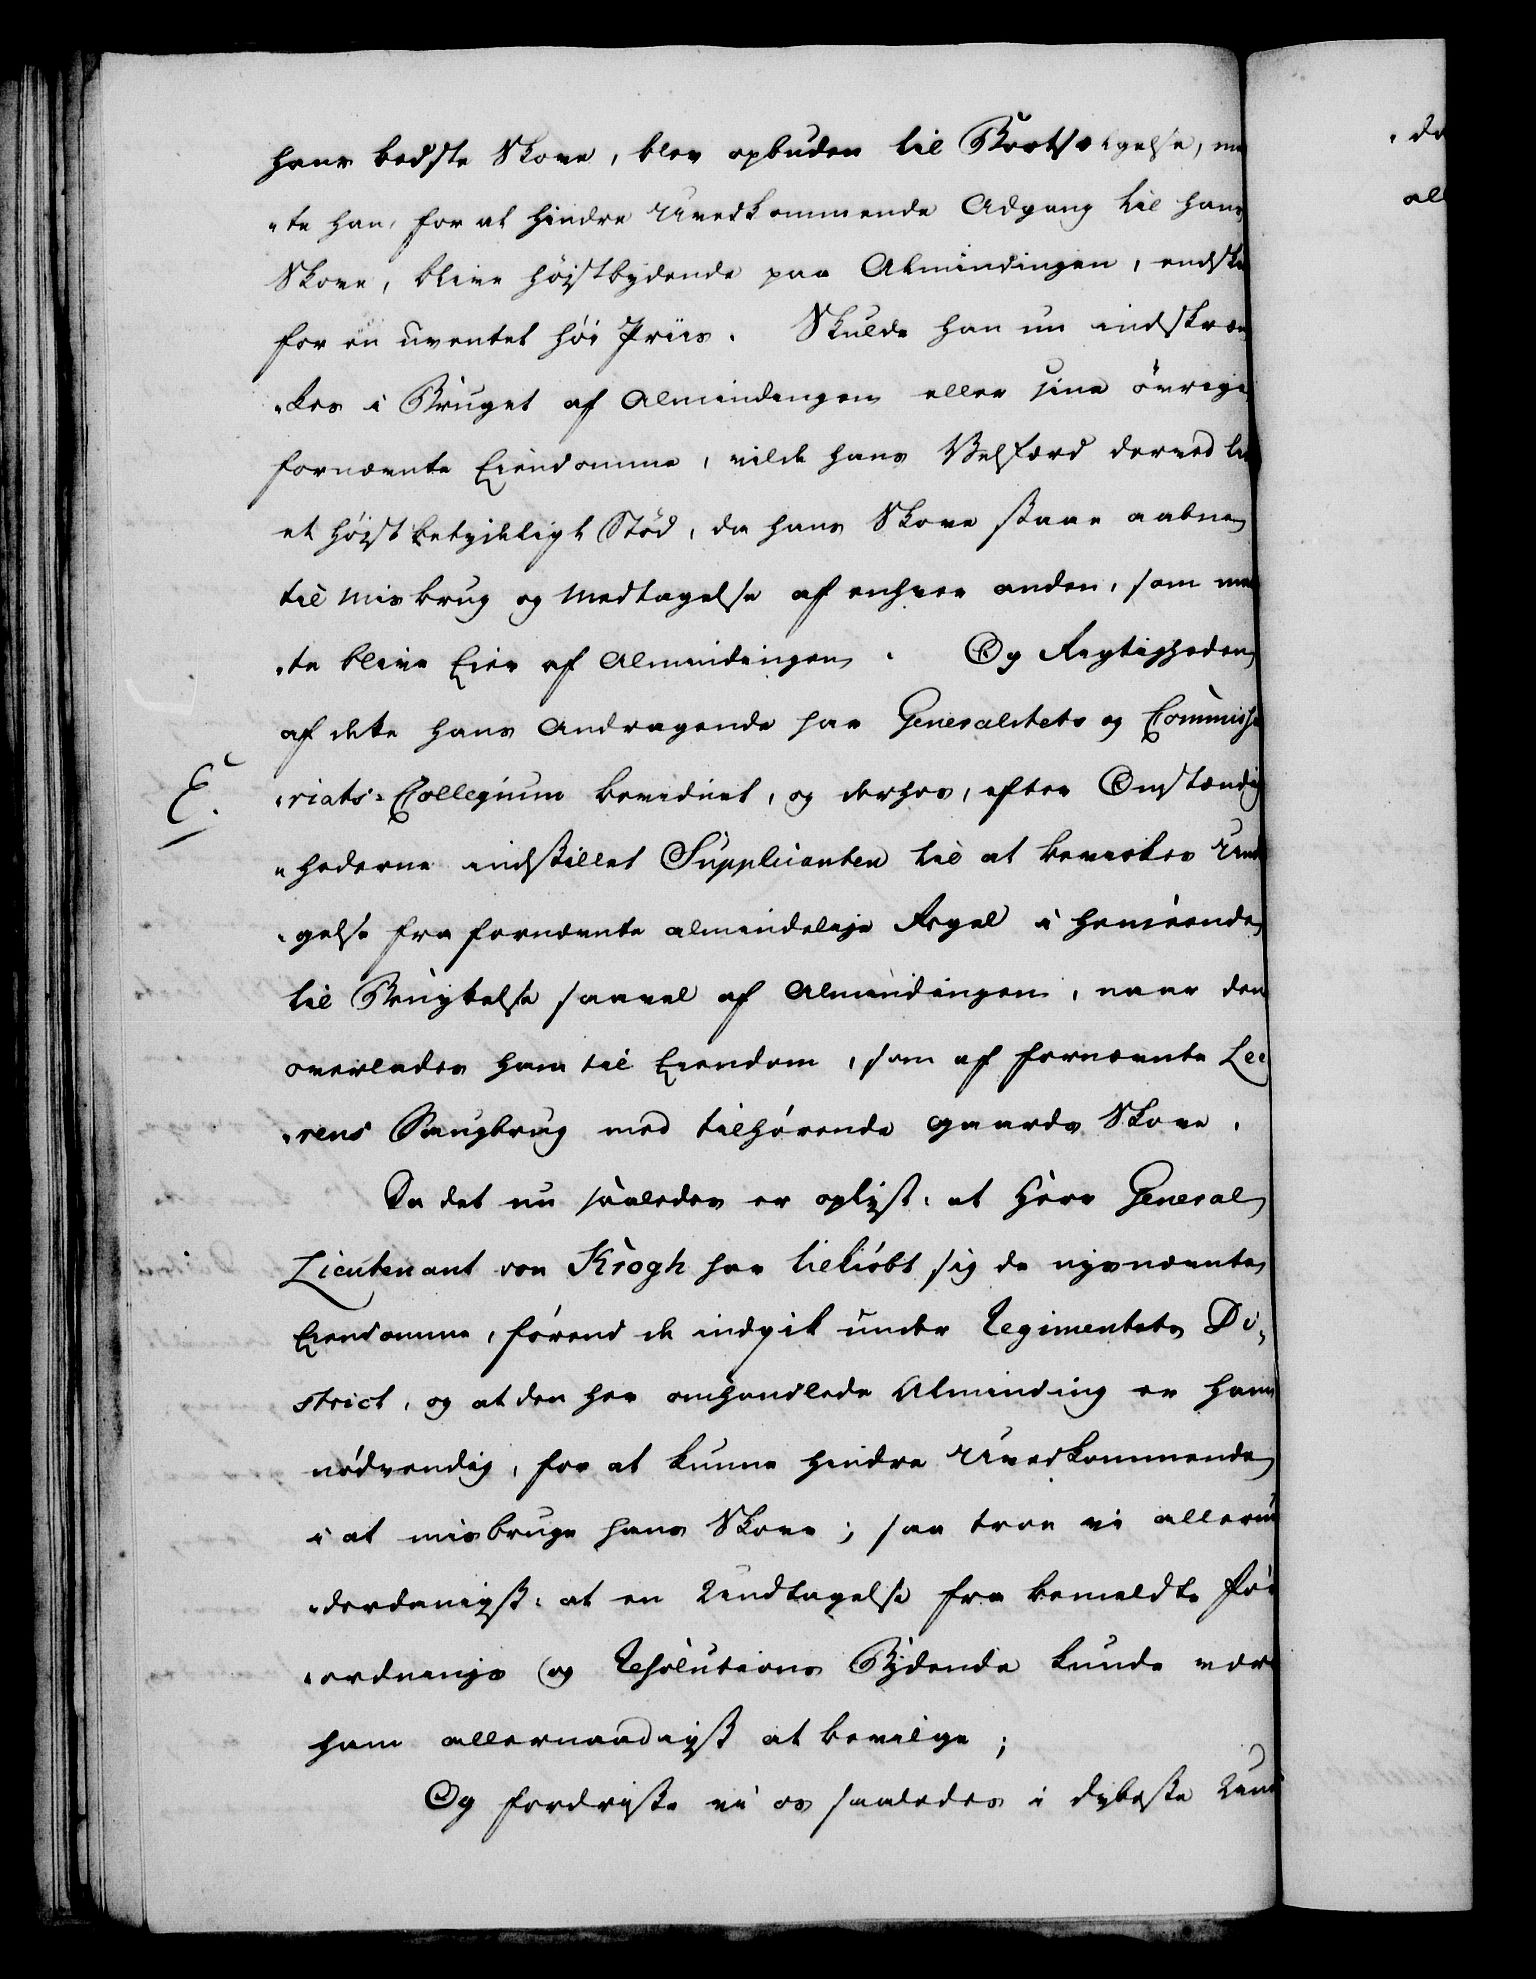 hans bedste Skove, blev opbuden til Bortsælgelse, m
„te han, for at hindre Uvedkommende Adgang til hans
Skove, blive høistbydende paa Almindingen, endsk
for en uventet høi Priis. Skulde han nu indskræn
„kes i Bruget af Almindingen eller sine övrige
fornævnte Eiendomme, vilde hans Velfærd derved li
et høist betydeligt Stød, da hans Skove staae aabne
til Misbrug og Medtagelse af enhver anden, som m
„te blive Eier af Almindingen. Og Rigtigheden
af dette hans Andragende har Generalitets og Commissa
E.
„riats-Collegium bevidnet, og derhos, efter Omstændig
„hederne indstillet Supplicanten til at bevirkes Undt
„gelse fra fornævnte almindelige Regel i Henseende
til Benyttelse saavel af Almindingen, naar den
overlades ham til Eiendom, som af fornævnte Lee
„rens Saugbrug med tilhørende Gaards Skove.
Da det nu saaledes er oplyst: at Herr General
Lieutenant von Krogh har tilkiøbt sig de nysnævnte
Eiendomme, førend de indgik under Regimentets Di„
strict, og at den her omhandlede Alminding er ham
nødvendig, for at kunne hindre Uvedkommende
i at misbruge hans Skove; saa troe vi allerun
„derdanigst: at en Undtagelse fra bemeldte For
„ordnings og Resolutions Bydende kunde vær
ham allernaadigst at bevilge;
Og fordriste vi os saaledes i dybeste Und